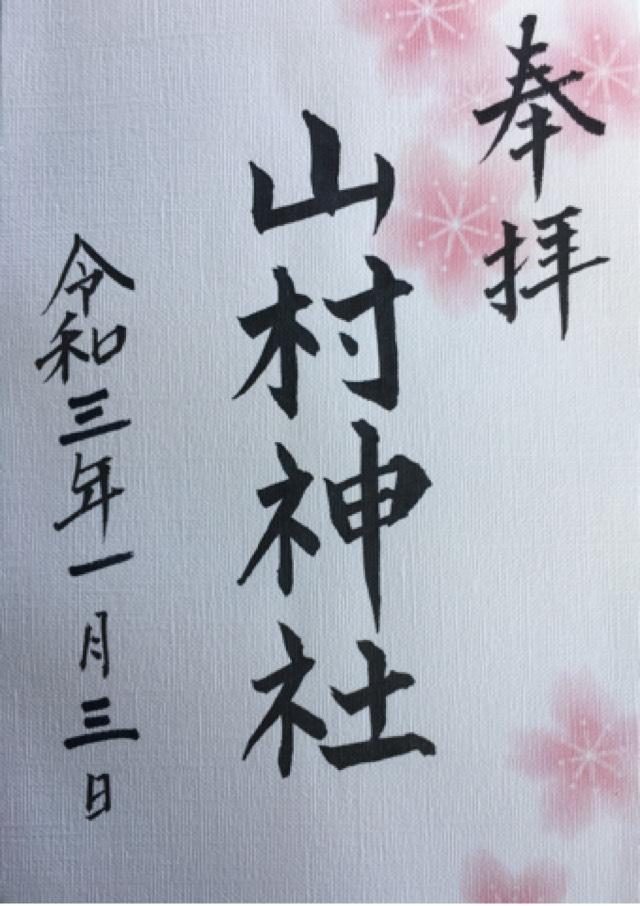 奉拝
山村神社
令和三年一月三日